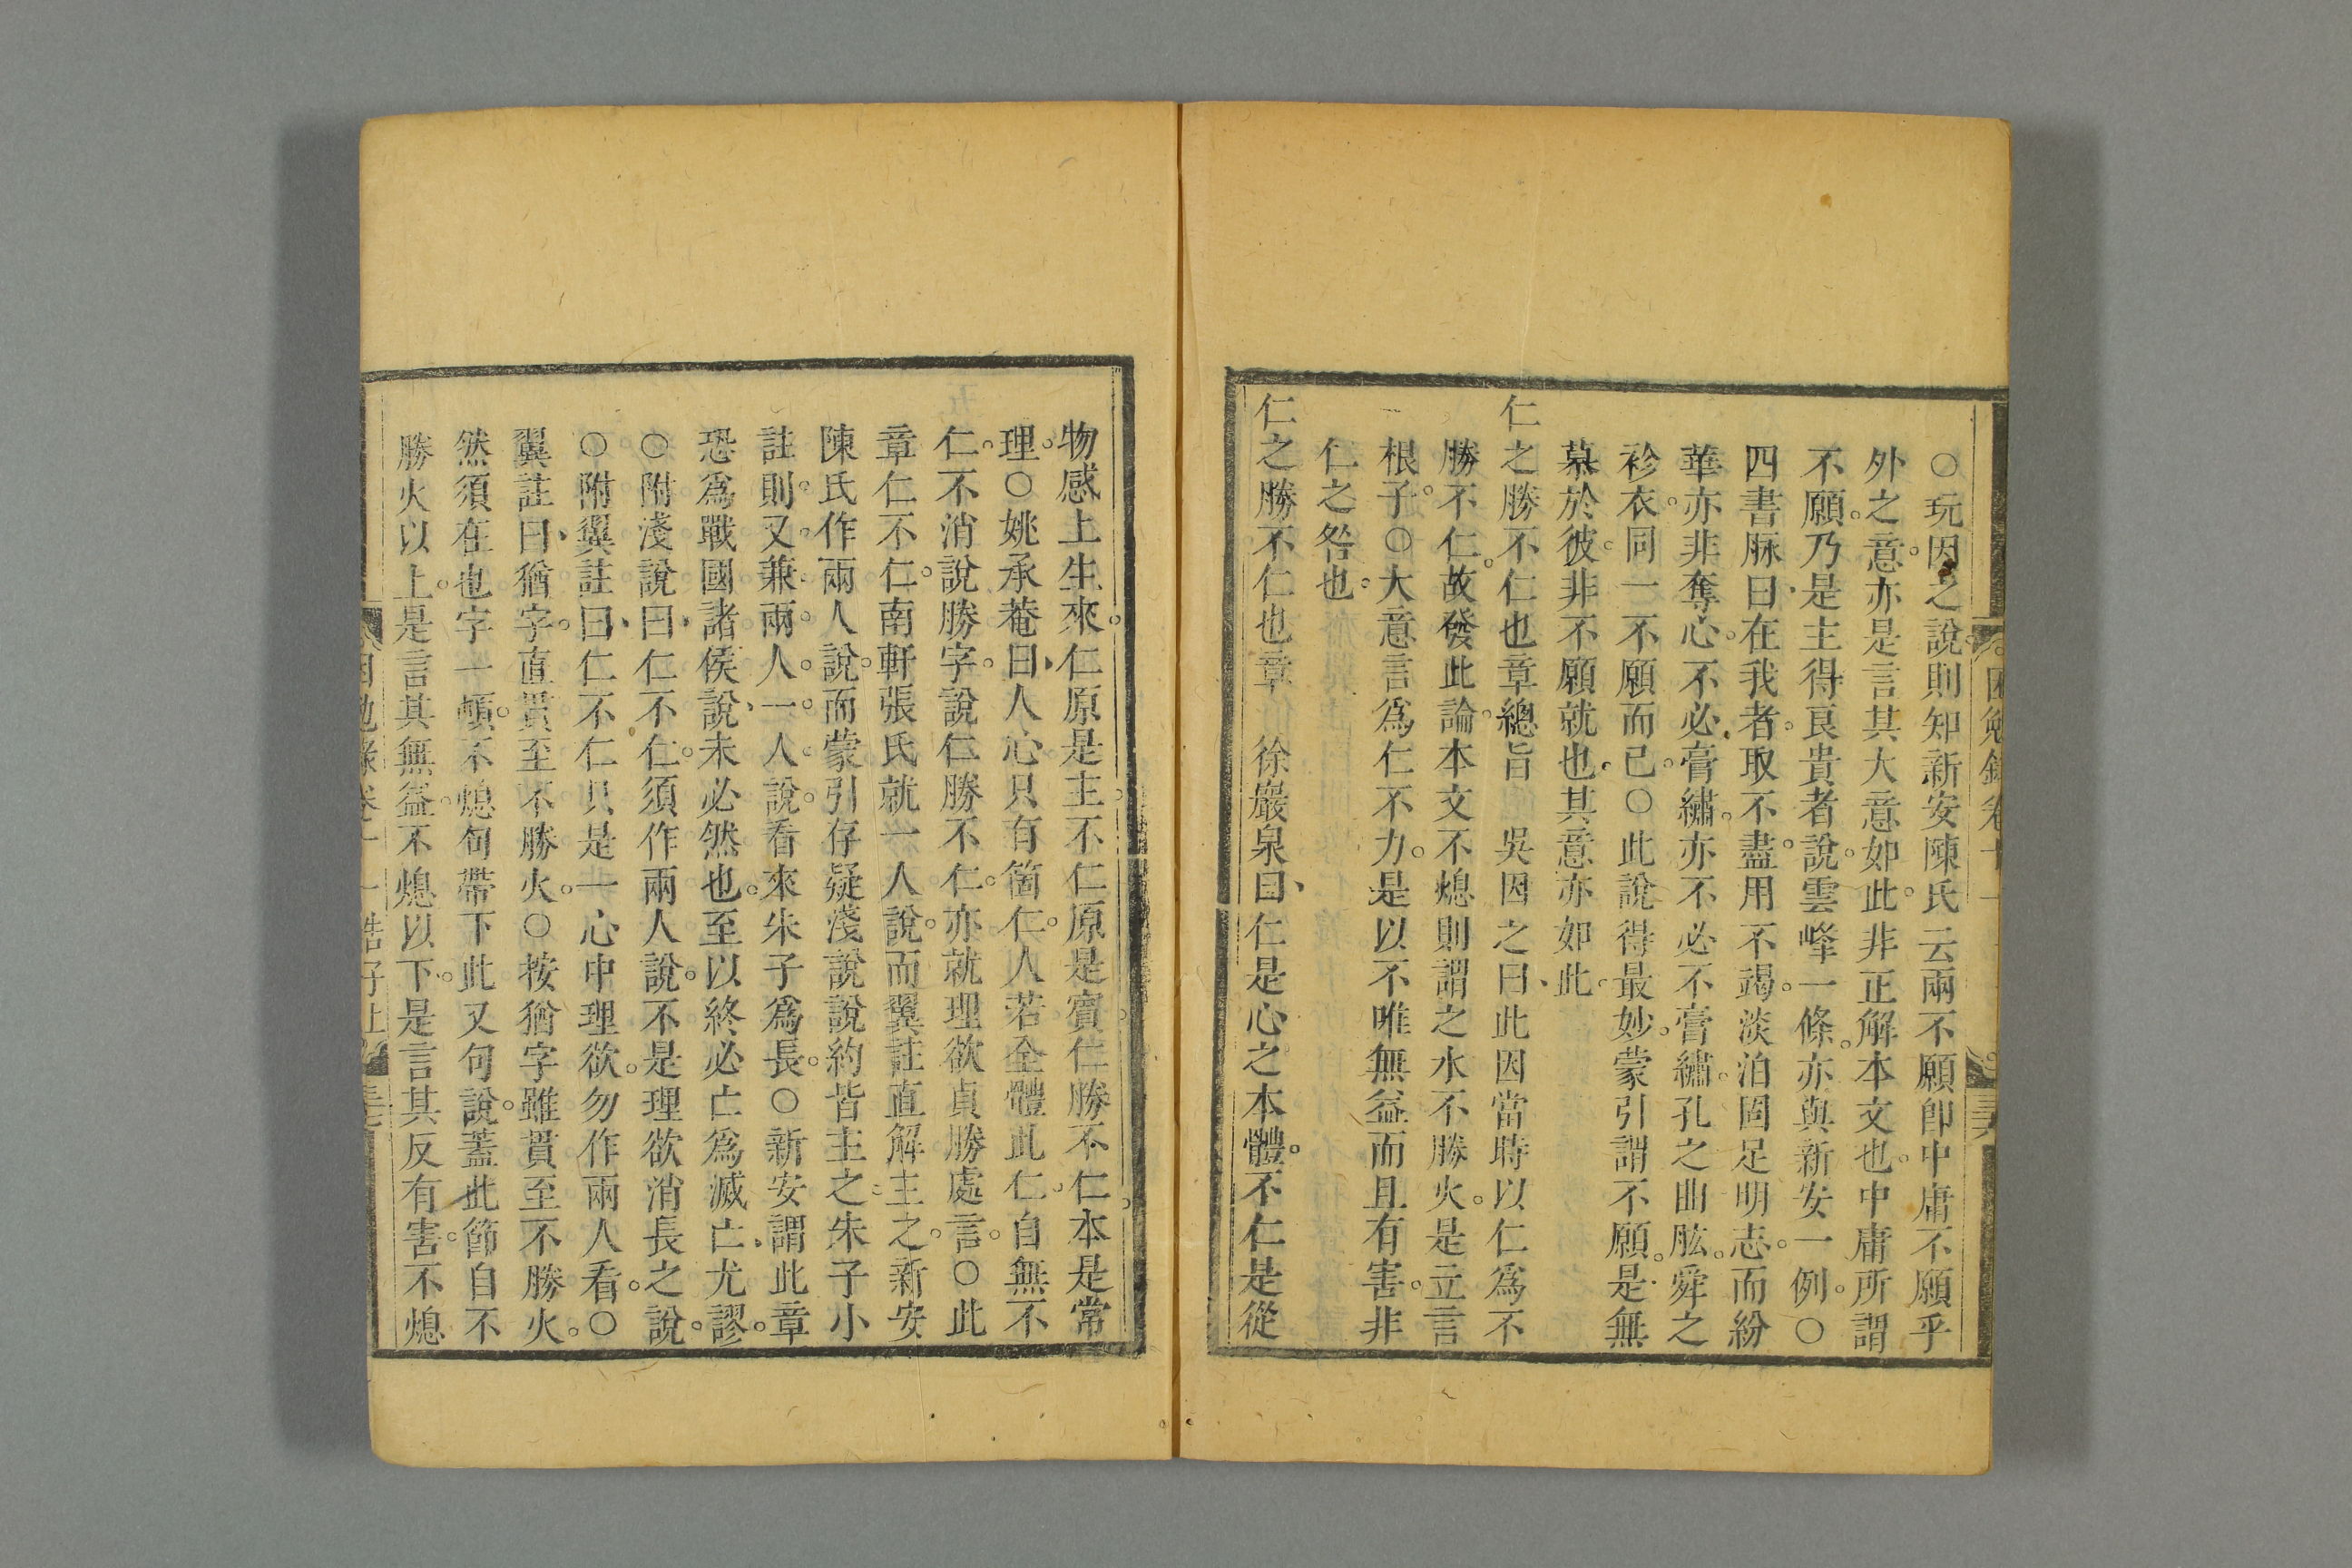 ○玩因之說則知新安陳氏云兩不願卽中庸不願乎
外之意亦是言其大意如此非正解本文也中庸所謂
不願乃是主得良貴者說雲峰一條亦與新安一例○
四書脈曰在我者取不盡用不竭淡泊固足明志而紛
華亦非奪心不必膏繡亦不必不膏繡孔之曲肱舜之
袗衣同一不願而已○此說得最妙蒙引謂不願是無
慕於彼非不願就也其意亦如此
仁之勝不仁也章總旨　吳因之曰此因當時以仁爲不
勝不仁故發此論本文不熄則謂之水不勝火是立言
根子○大意言爲仁不力是以不唯無益而且有害非
仁之咎也
仁之勝不仁也章　徐巖泉曰仁是心之本體不仁是從
物感上生來仁原是主不仁原是賓仁勝不仁本是常
理○姚承菴曰人心只有箇仁人若全體此仁自無不
仁不消說勝字說仁勝不仁亦就理欲貞勝處言○此
章仁不仁南軒張氏就一人說而翼註直解主之新安
陳氏作兩人說而蒙引存疑淺說說約皆主之朱子小
註則又兼兩人一人說看來朱子爲長○新安謂此章
恐爲戰國諸侯說未必然也至以終必亡爲滅亡尤謬
○附淺說曰仁不仁須作兩人說不是理欲消長之說
○附翼註曰仁不仁只是一心中理欲勿作兩人看○
翼註曰猶字直貫至不勝火○按猶字雖貫至不勝火
然須在也字一頓不熄句帶下此又句說蓋此節自不
勝火以上是言其無益不熄以下是言其反有害不熄